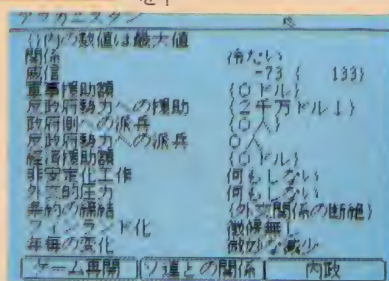 を中
アフガニスタン
{}内の数値は最大値
関係 {冷たい}
威信 -73 { 133}
軍事援助額 {0ドル}
反政府勢力への援助 {2千万ドル↓}
政府側への派兵 {0人}
反政府勢力への派兵 0人
経済援助額 {0ドル}
非安定化工作 何もしない
外交的圧力 何もしない
条約の締結 {外交関係の断絶}
フィンランド化 徴候無し
年毎の変化 微妙な減少
ゲーム再開 ソ連との関係 内政